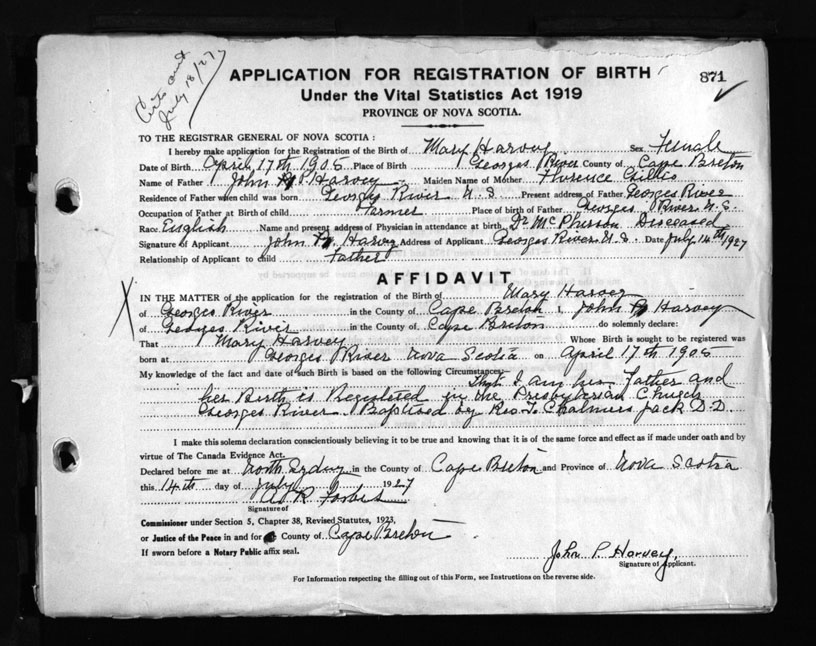 APPLICATION FOR REGISTRATION OF BIRTH
871
Under the Vital Statistics Act 1919
July 18/27
PROVINCE OF NOVA SCOTIA.
TO THE REGISTRAR GENERAL OF NOVA SCOTIA:
I hereby make application for the Registration of the Birth of Mary Harvey Sex Female
Date of Birth April 17th 1905 Place of Birth Georges River County of Cape Breton
Name of Father John P Harvey Maiden Name of Mother Florence
Residence of Father when child was born Georges River N.S. Present address of Father Georges River
Occupation of Father at Birth of child Farmer Place of birth of Father Georges River N.S.
Race English Name and present address of Physician in attendance at birth Dr McPherson Diseased
Signature of Applicant John P Harvey Address of Applicant Georges River N.S. Date July 14th 1927
Relationship of Applicant to child Father
AFFIDAVIT
IN THE MATTER of the application for the registration of the Birth of Mary Harvey
of Georges River in the County of Cape Breton I, John P Harvey
of Georges River in the County of Cape Breton do solemnly declare:
That Mary Harvey Whose Birth is sought to be registered was
born at Georges River Nova Scotia on April 17th 1905
My knowledge of the fact and date of such Birth is based on the following Circumstances: That I am her Father and
her Birth is Registered in the Presbyterian Church
Georges River. Baptised by Rev. T. Chalmers Jack D.D.
I make this solemn declaration conscientiously believing it to be true and knowing that it is of the same force and effect as if made under oath and by
virtue of The Canada Evidence Act.
Declared before me at North Sydney in the County of Cape Breton and Province of Nova Scotia
this 14th day of July 1927
A R Forbes
Signature of
Commissioner under Section 5, Chapter 38, Revised Statutes, 1923,
or Justice of the Peace in and for County of Cape Breton
If sworn before a Notary Public affix seal.
John P. Harvey,
Signature of Applicant.
For Information respecting the filling out of this Form, see Instructions on the reverse side.